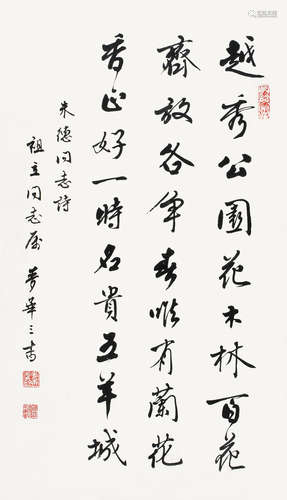 越秀公園花木林百花
齊放各争春唯有蘭花
香正好一時名貴五羊城
朱德同志詩
祖立同志属 麥華三書